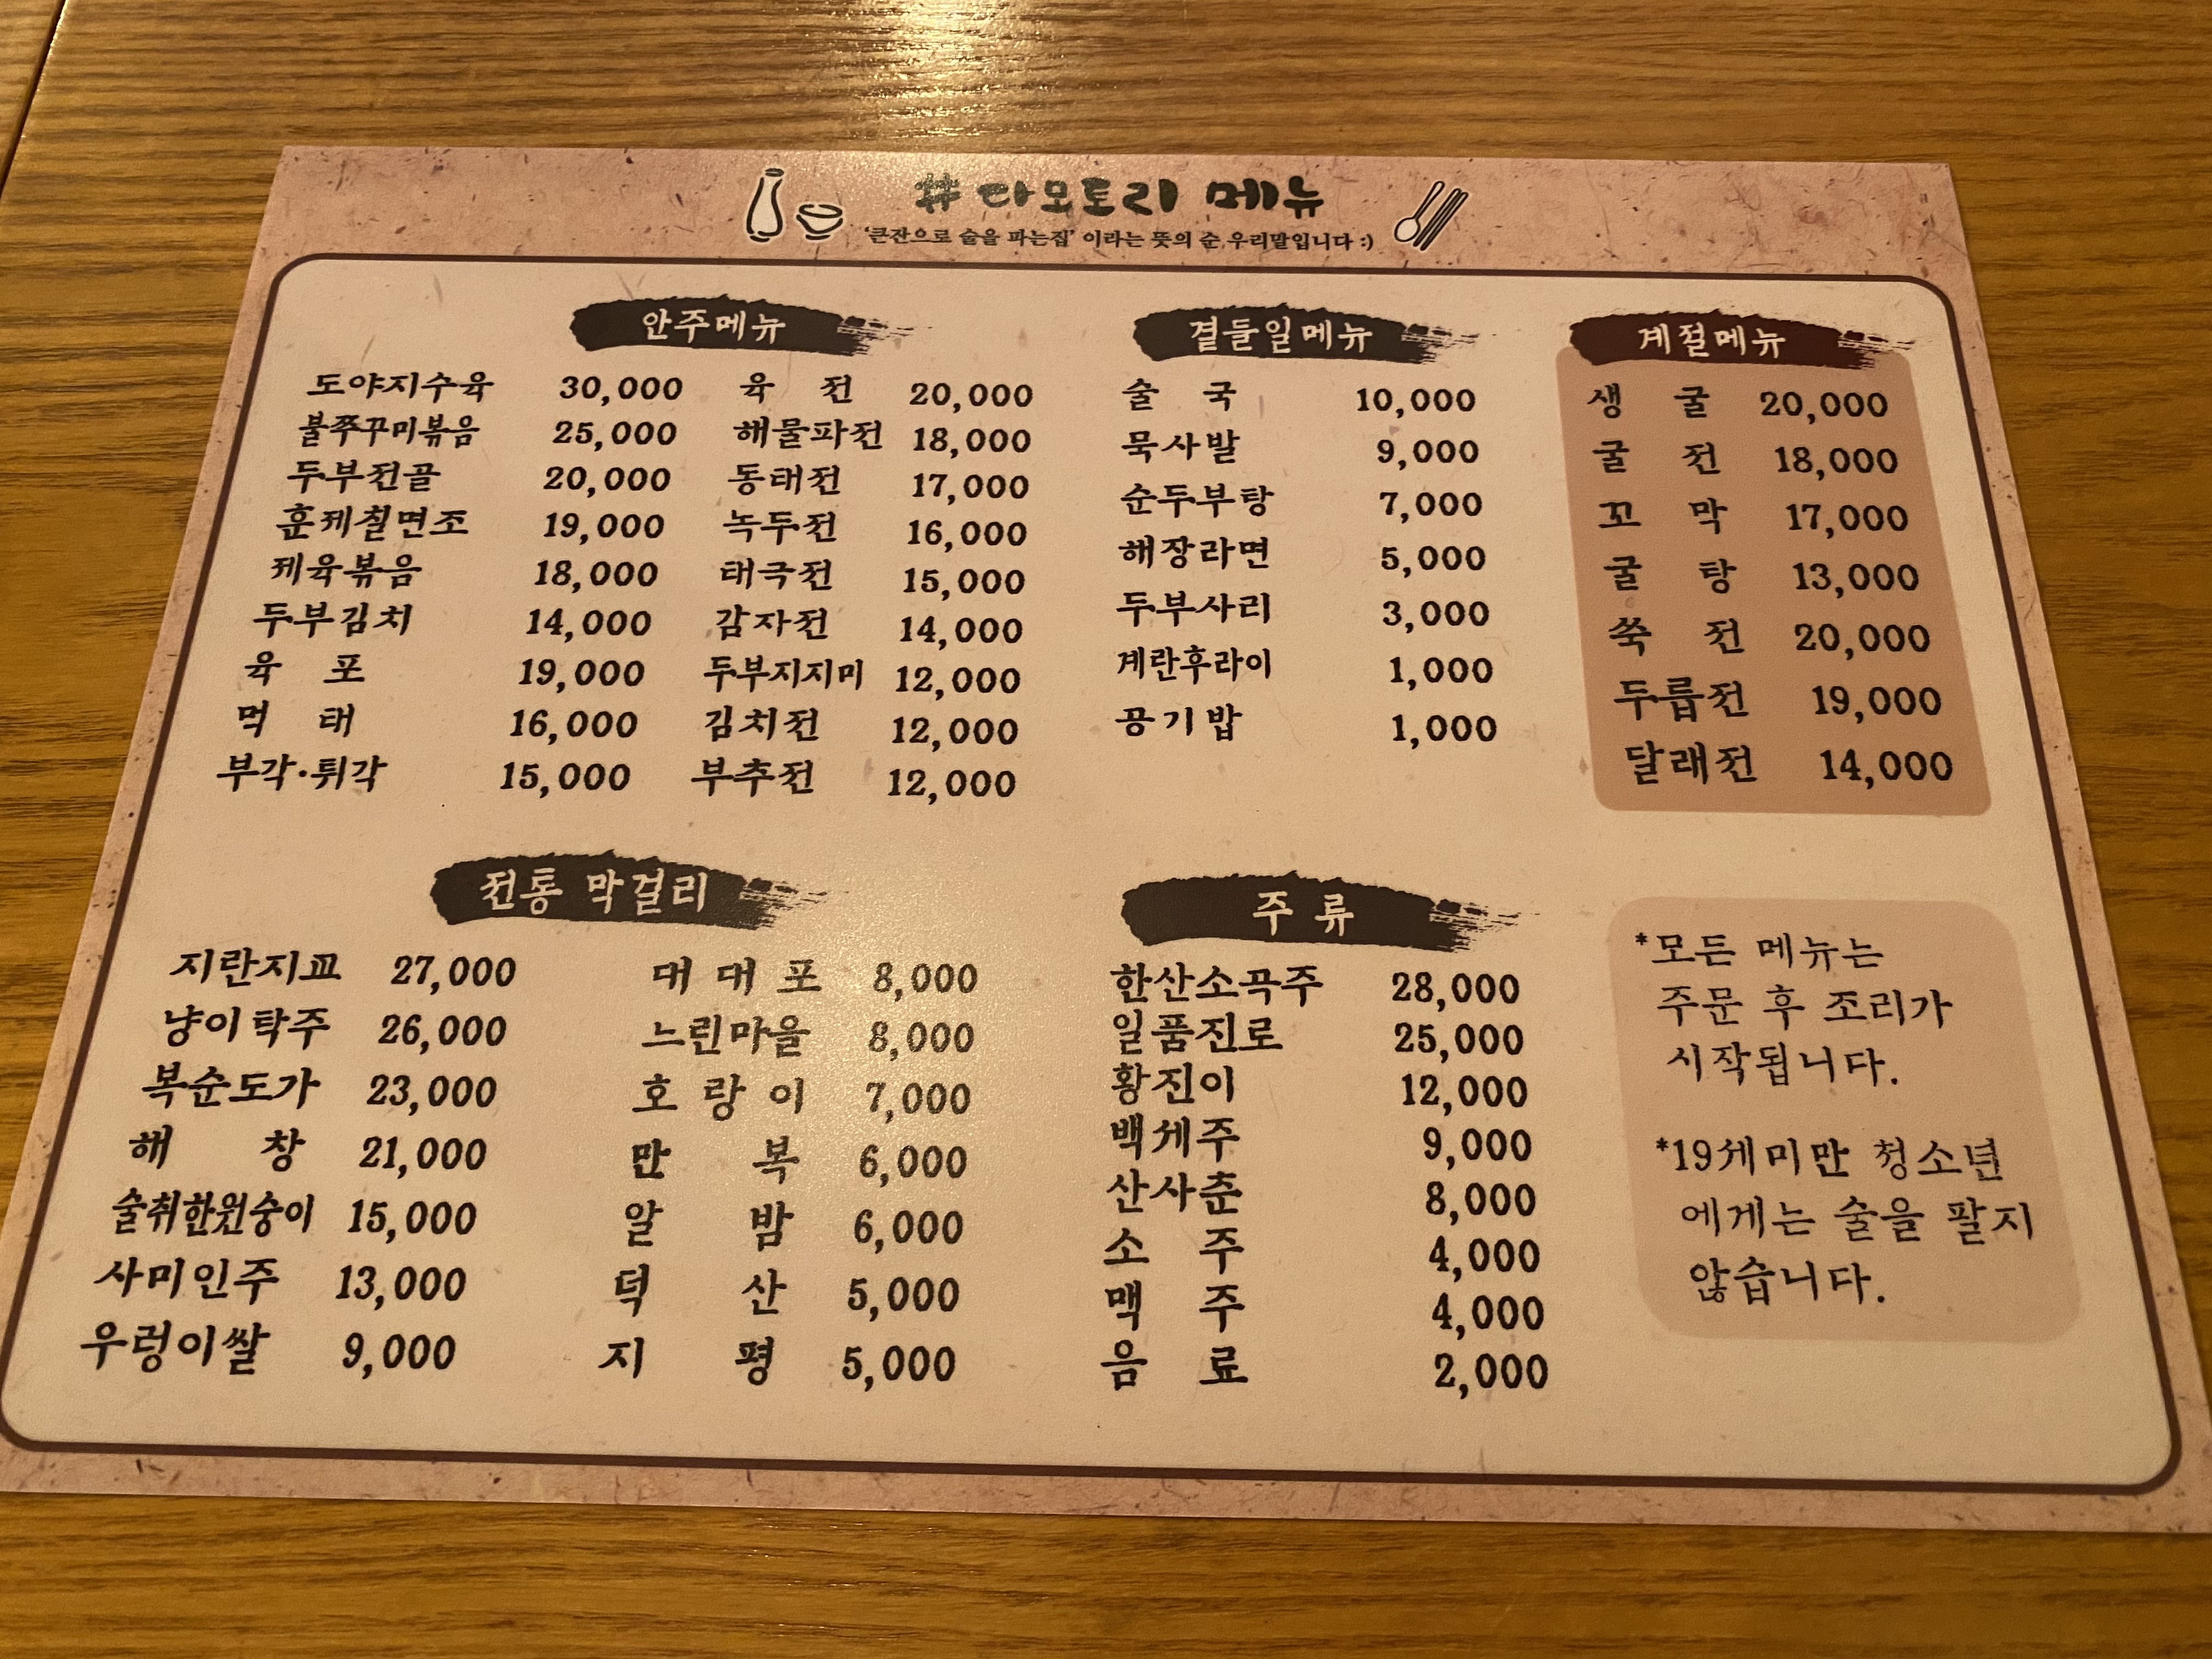 #다모토리 메뉴
'큰잔으로 술을 파는집' 이라는 뜻의 순 우리말입니다 :)
안주메뉴
도야지수육 30,000 육 전 20,000
불쭈꾸미볶음 25,000 해물파전 18,000
두부전골 20,000 동태전 17,000
훈제칠면조 19,000 녹두전 16,000
제육볶음 18,000 태극전 15,000
두부김치 14,000 감자전 14,000
육 포 19,000 두부지지미 12,000
먹 태 16,000 김치전 12,000
부각·튀각 15,000 부추전 12,000
곁들일메뉴
술 국 10,000
묵사발 9,000
순두부탕 7,000
해장라면 5,000
두부사리 3,000
계란후라이 1,000
공기밥 1,000
계절메뉴
생 굴 20,000
굴 전 18,000
꼬 막 17,000
굴 탕 13,000
쑥 전 20,000
두릅전 19,000
달래전 14,000
전통 막걸리
지란지교 27,000 대 대 포 8,000
냥이탁주 26,000 느린마을 8,000
복순도가 23,000 호 랑 이 7,000
해 창 21,000 만 복 6,000
술취한원숭이 15,000 알 밤 6,000
사미인주 13,000 덕 산 5,000
우렁이쌀 9,000 지 평 5,000
주 류
한산소곡주 28,000
일품진로 25,000
황진이 12,000
백세주 9,000
산사춘 8,000
소 주 4,000
맥 주 4,000
음 료 2,000
*모든 메뉴는
주문 후 조리가
시작됩니다.
*19세미만 청소년
에게는 술을 팔지
않습니다.